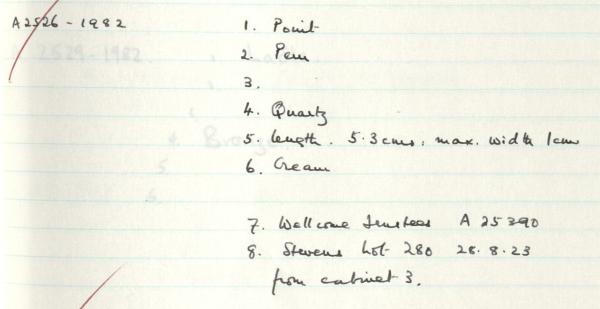 A2526-1982 1. Point
2. Peru
3.
4. Quartz
5. Length. 5.3cms, max. width 1cm
6. Cream
7. Wellcome Trustees A 25390
8. Stevens Lot 280 28.8.23
from cabinet 3.
A 2529-1982.
4. Bronze
5.
6.